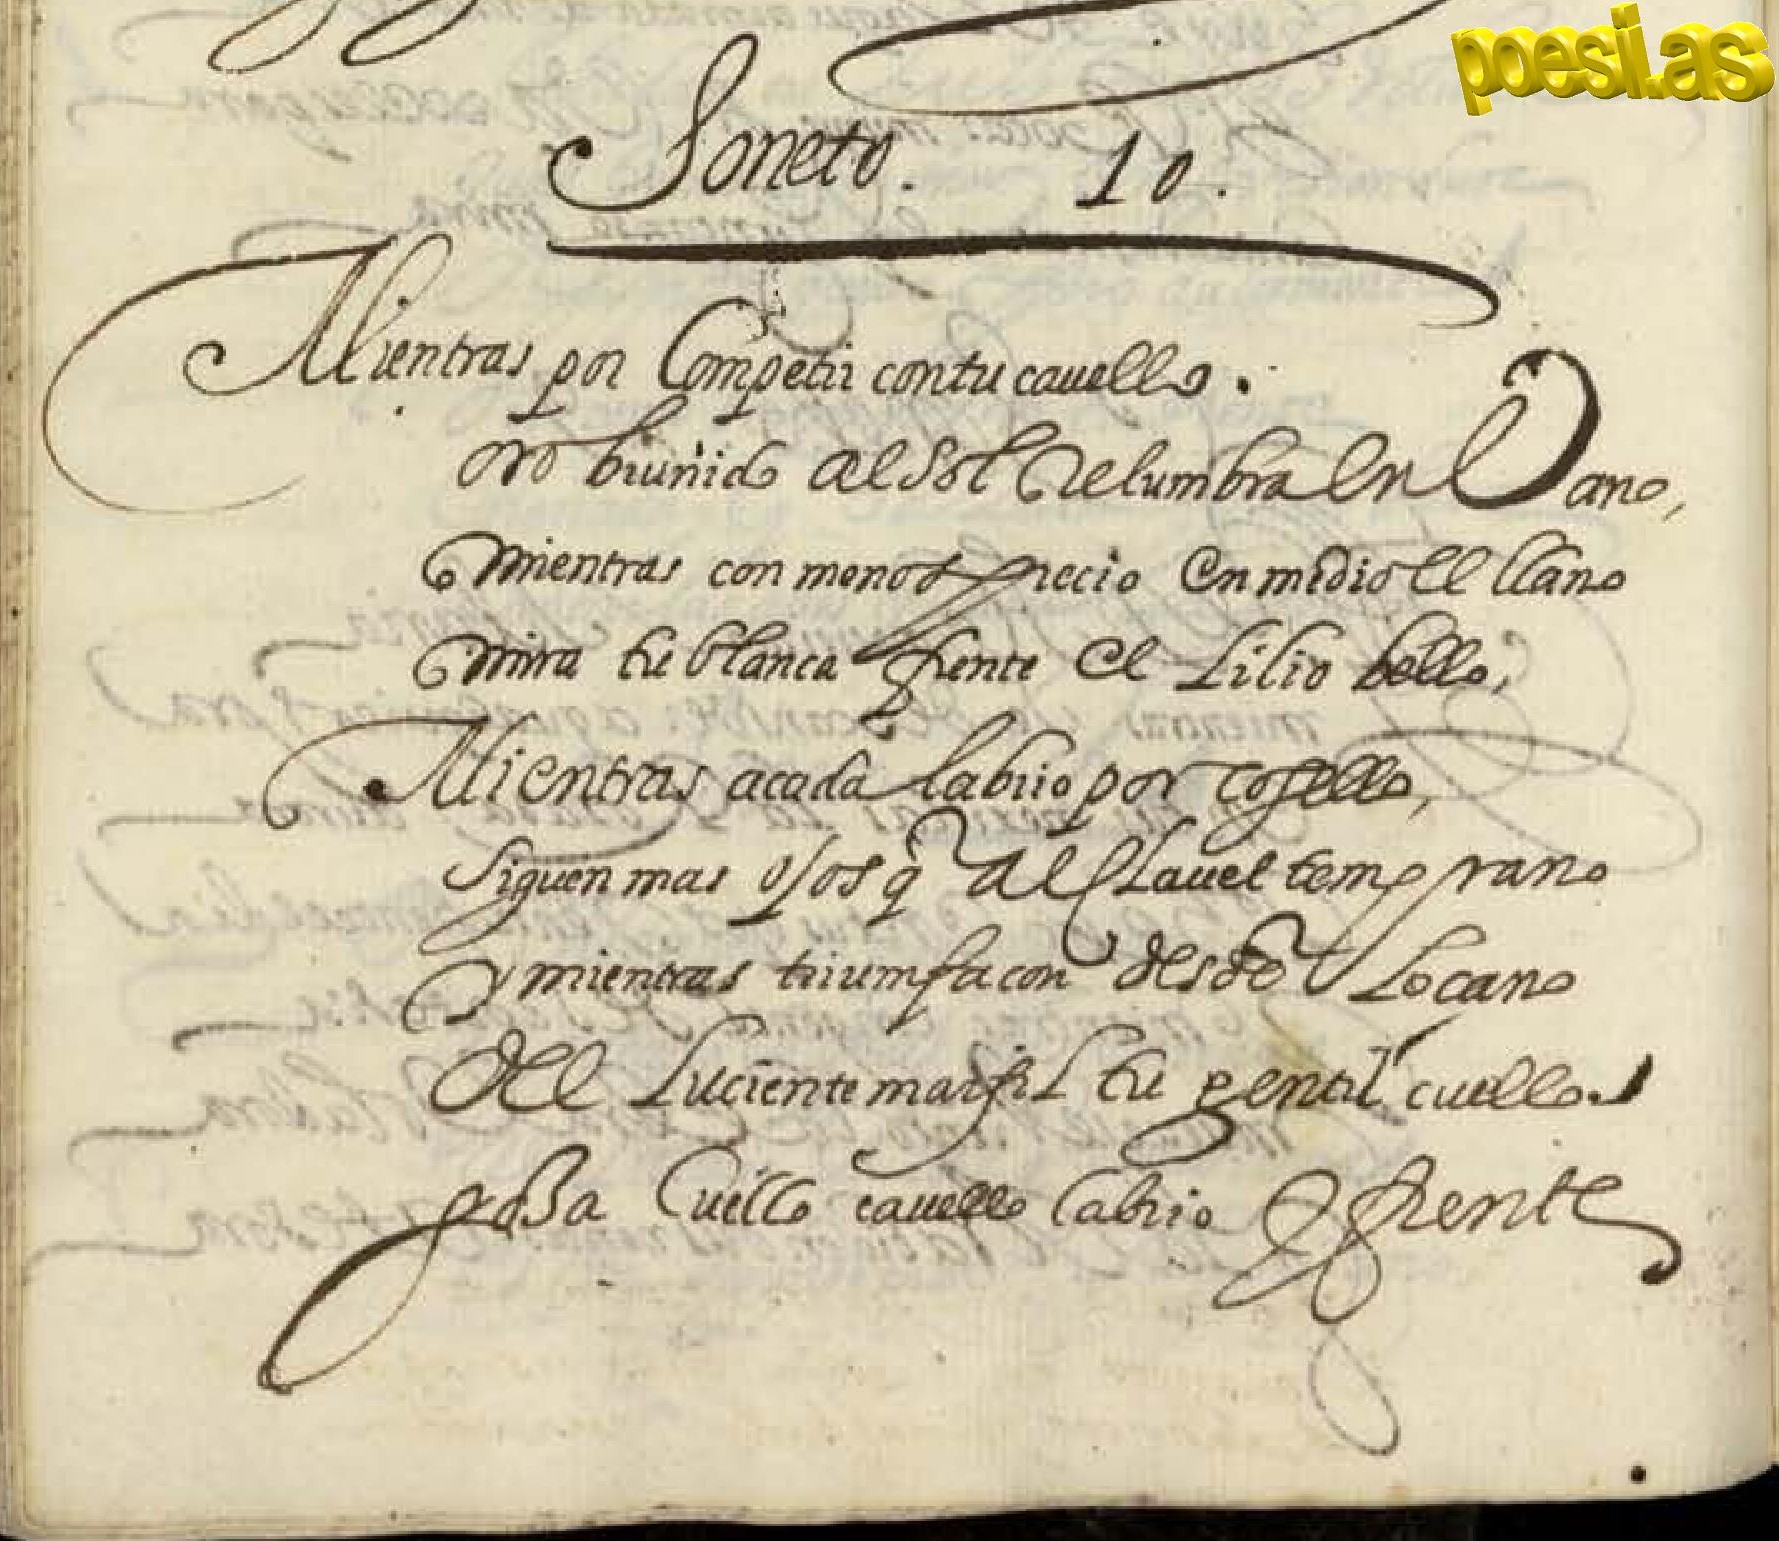 poesi.as
Soneto. 10.
Mientras por Competir contu cauello.
oro bruñido al Sol Relumbra En Vano,
mientras con menosprecio En medio el llano
mira tu blanca frente el Lilio bello,
Mientras a cada labrio por cogello,
Siguen mas ojos q̃ al Clauel temprano
y mientras triumfa con desdẽ Loçano
del Luciente marfil tu gentil cuello.
goza Cuello cauello labrio y frente